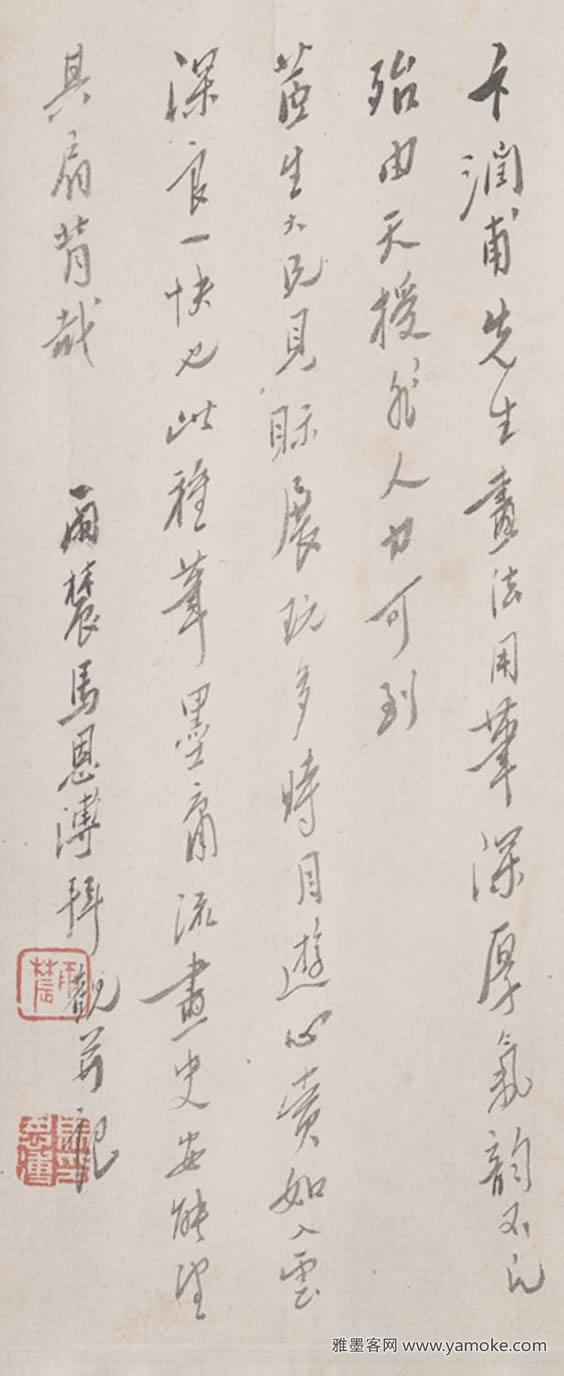 卞潤甫先生畫法用筆深厚氣韻不凡
殆由天授非人力可到
蓝生大兄見眎展玩多時目遊心賞如入雲
深良一快也此種筆墨庸流畫史安能望
其肩背哉
雨農馬恩溥拜觀並觀
雅墨客网 www.yamoke.com